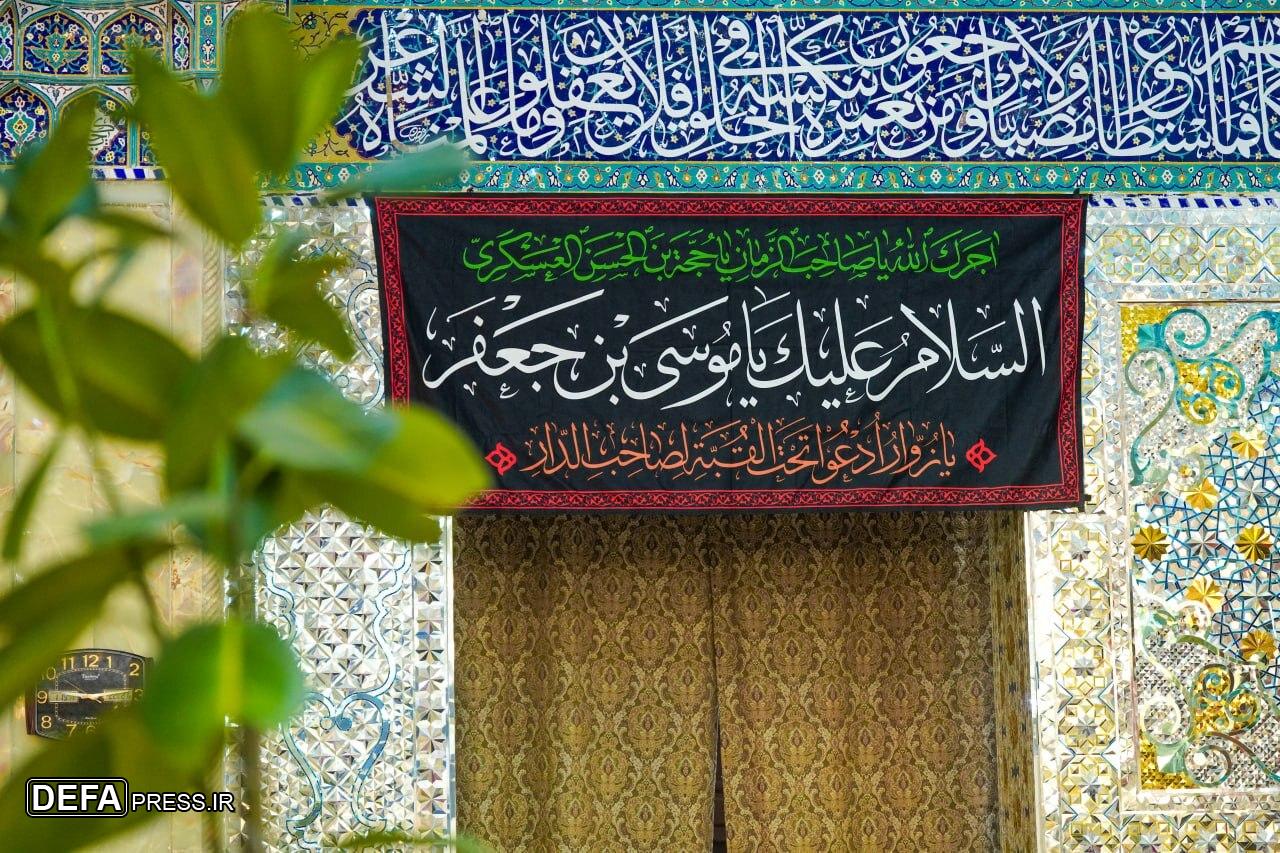 فما استطاعوا مضيا ولا يرجعون ومن نعمره ننكسه في الخلق أفلا يعقلون وما علمناه الشعر
اجرك الله يا صاحب الزمان يا حجة بن الحسن العسكري
السلام عليك يا موسى بن جعفر
يا زوار أدعوا تحت القبة لصاحب الدار
11 12 1
10
9 3
8
7 6
DEFAPRESS.IR